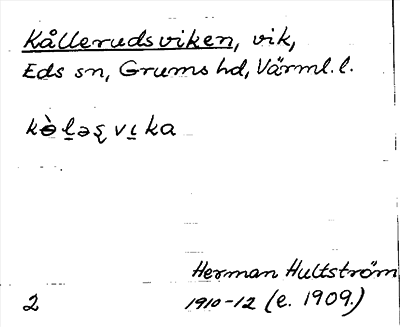 Kållerudsviken, vik,
Eds sn, Grums hd, Värml. l.
kɵ̀l̠əʂ vɩka
Herman Hultström
2 1910-12 (e. 1909.)